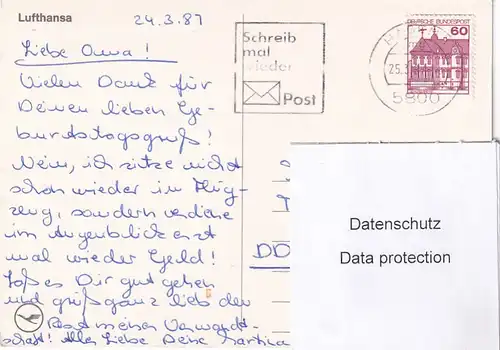 Lufthansa
24.3.87
Schreib
mal
wieder
Post
DEUTSCHE BUNDESPOST
60
5800
Liebe Oma!
Vielen Dank für
Deinen lieben Ge-
burtstagsgruß!
Nein, ich sitze nicht
schon wieder im Flug-
zeug, sondern verdiene
im Augenblick erst
mal wieder Geld!
Laß es Dir gut gehen
und grüß ganz lieb den
Rest meiner Verwandt-
schaft! Alles Liebe Deine Martina
DD
Datenschutz
Data protection